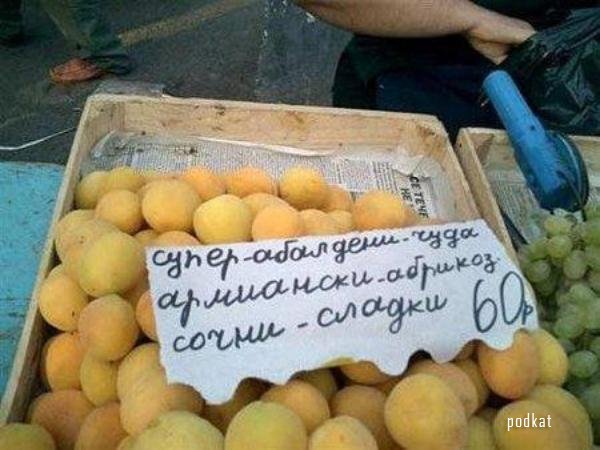 супер-абалдени-чуда
армиански-абрикоз.
сочни-сладки 60р
СЕ ТЕЧЕ
НЕ
podkat